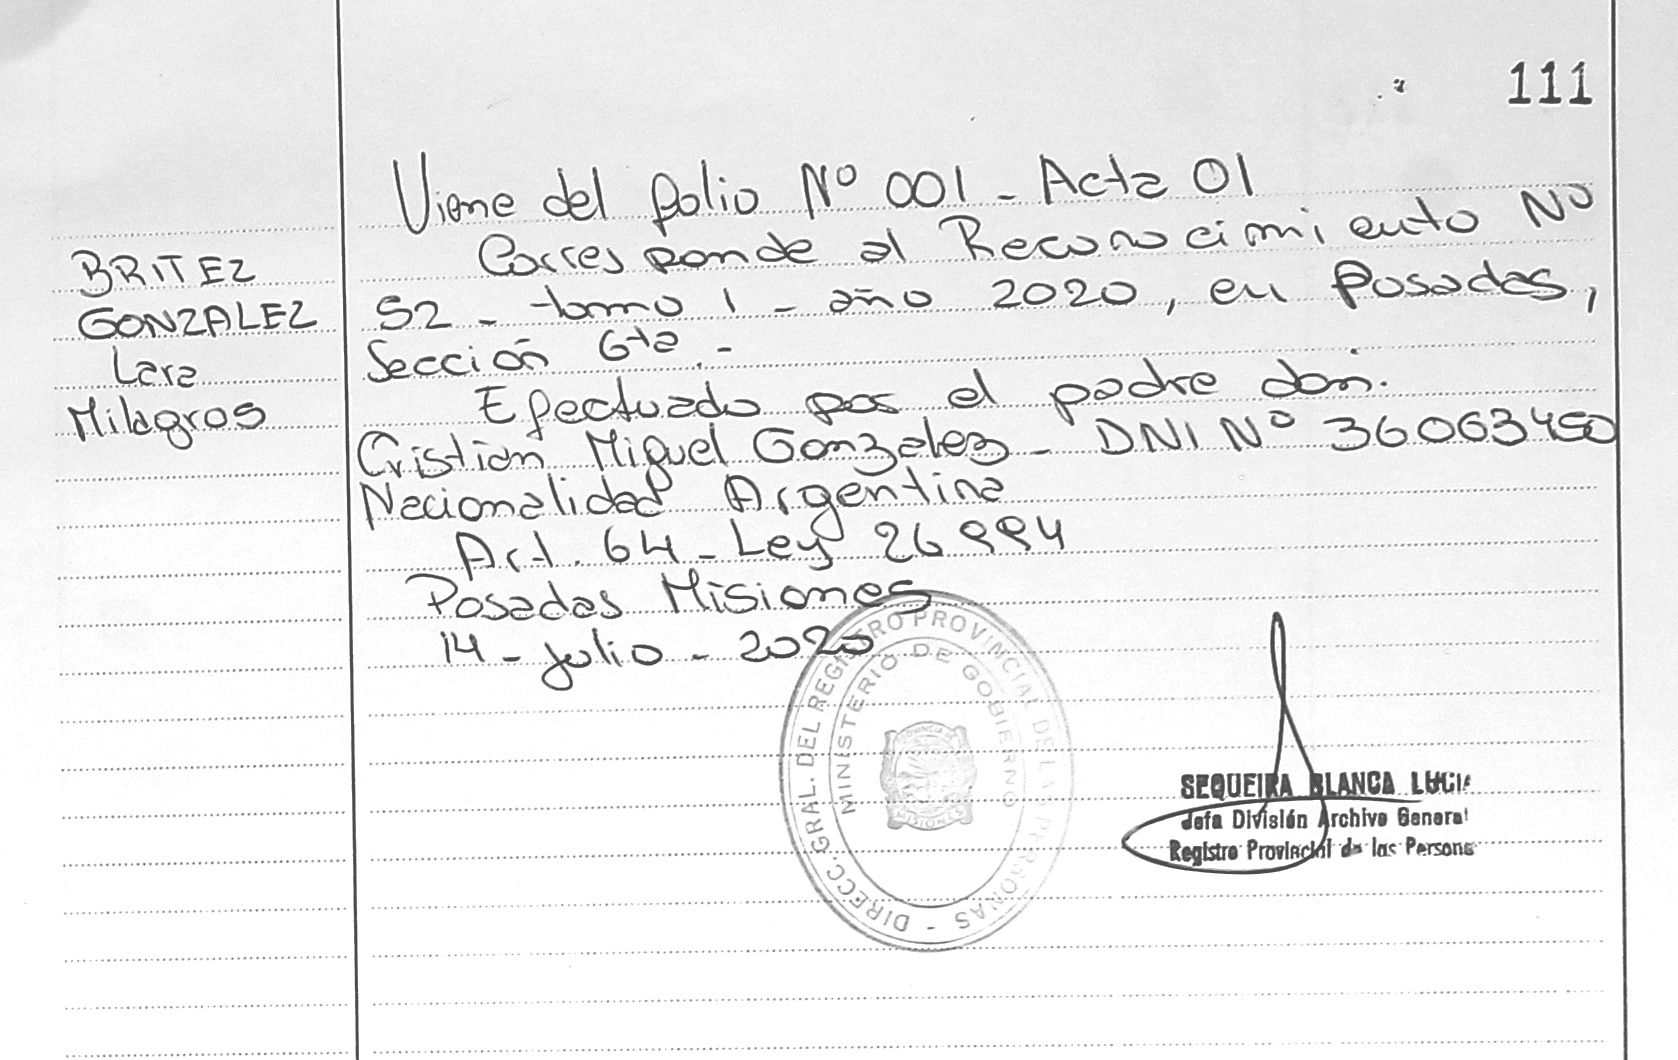 111
Viene del folio Nº 001 - Acta 01
Corresponde al Reconocimiento Nº
52 - tomo 1 - año 2020, en Posadas,
Sección 6ta. -
Efectuado por el padre don:
Cristian Miguel Gonzalez - DNI Nº 36063450
Nacionalidad Argentina
Art. 64 - Ley 26994
Posadas Misiones
14 - julio - 2020
BRITEZ
GONZALEZ
Lara
Milagros
DIRECC. GRAL. DEL REGISTRO PROVINCIAL DE LAS PERSONAS -
MINISTERIO DE GOBIERNO
PROVINCIA DE
MISIONES
SEQUEIRA BLANCA LUCIA
Jefa División Archivo General
Registro Provincial de las Persona